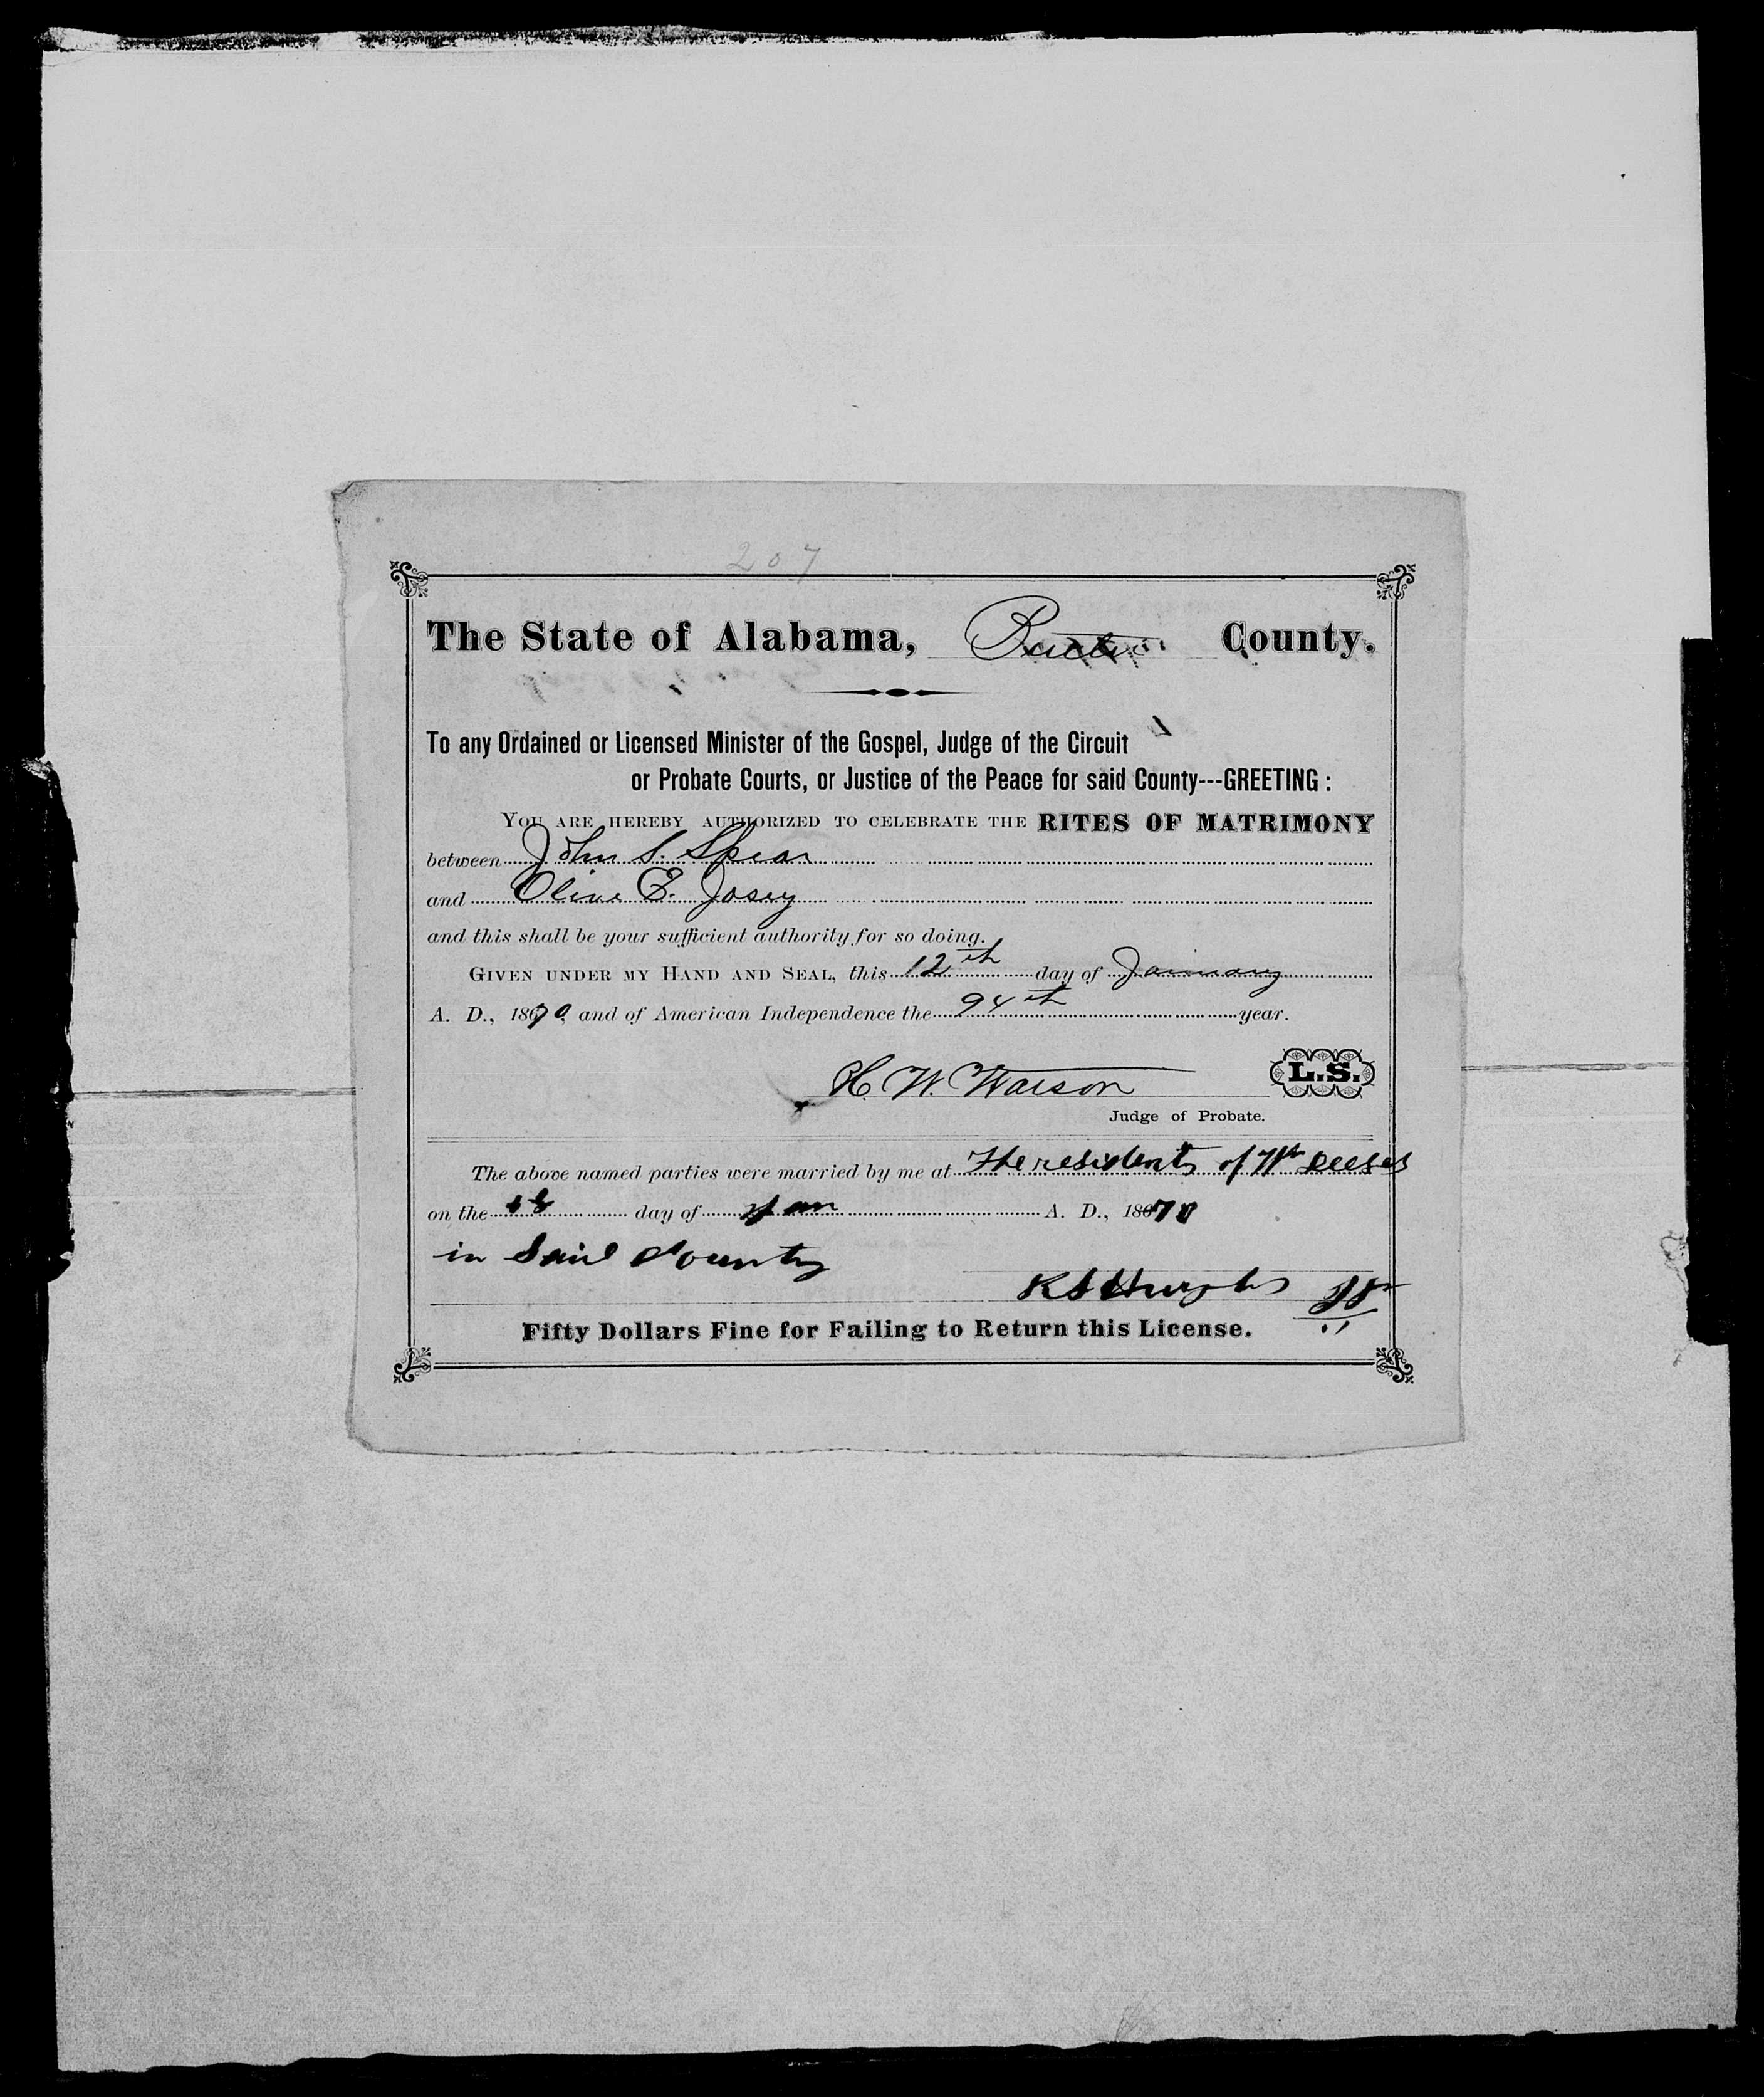 207
The State of Alabama, Butler County.
To any Ordained or Licensed Minister of the Gospel, Judge of the Circuit
or Probate Courts, or Justice of the Peace for said County---GREETING :
YOU ARE HEREBY AUTHORIZED TO CELEBRATE THE RITES OF MATRIMONY
between John S. Spear
and Olive E. Josey
and this shall be your sufficient authority for so doing.
GIVEN UNDER MY HAND AND SEAL, this 12th day of January
A. D., 1870, and of American Independence the 94th year.
H. W. Watson L.S.
Judge of Probate.
The above named parties were married by me at The residents of
on the day of Jan A. D., 1870
in Said County
Fifty Dollars Fine for Failing to Return this License.